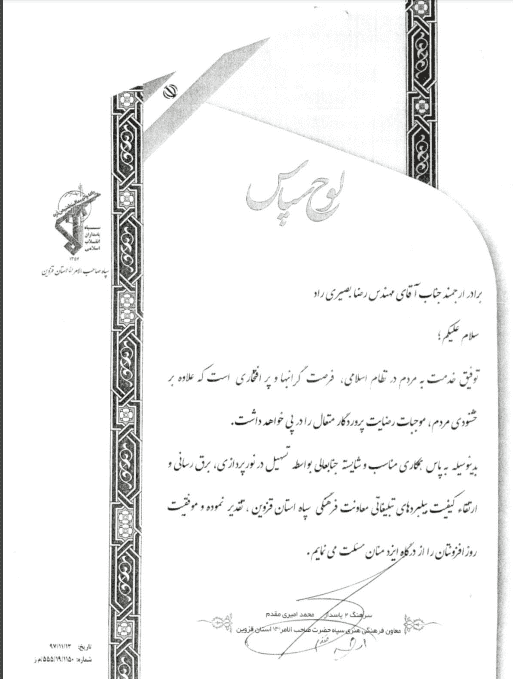 لوح سپاس
سپاه
پاسداران
انقلاب
اسلامی
سپاه صاحب الامر (عج) استان قزوین
برادر ارجمند جناب آقای مهندس رضا بصیری راد
سلام علیکم؛
توفیق خدمت به مردم در نظام اسلامی، فرصت گرانبها و پر افتخاری است که علاوه بر
خشنودی مردم، موجبات رضایت پروردگار متعال را در پی خواهد داشت.
بدینوسیله به پاس همکاری مناسب و شایسته جنابعالی بواسطه تسهیل در نورپردازی، برق رسانی و
ارتقاء کیفیت بیلبردهای تبلیغاتی معاونت فرهنگی سپاه استان قزوین، تقدیر نموده و موفقیت
روزافزونتان را از درگاه ایزد منان مسئلت می نمایم.
سرهنگ ۲ پاسدار محمد امیری مقدم
معاون فرهنگی هنری سپاه حضرت صاحب الامر(عج) استان قزوین
تاریخ: ۹۷/۱۱/۱۳
شماره: